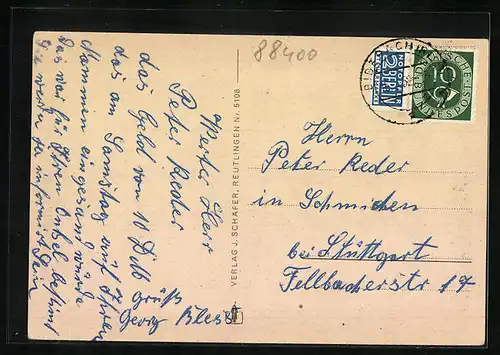 88400
Werter Herr
Peter Reder
das Geld von 10 D
das am Samstag auf Ihren
Nammen eingesand wurde
Das war für Ihren Onkel bestimt
Sie werden ja informirt sein
grüß
Georg Blest
VERLAG J. SCHÄFER, REUTLINGEN Nr. 5108
NOTOPFER
2 BERLIN
STEUERMARKE
DEUTSCHE
10
BUNDESPOST
Herrn
Peter Reder
in Schmichen
bei Stuttgart
Fellbacherstr 17